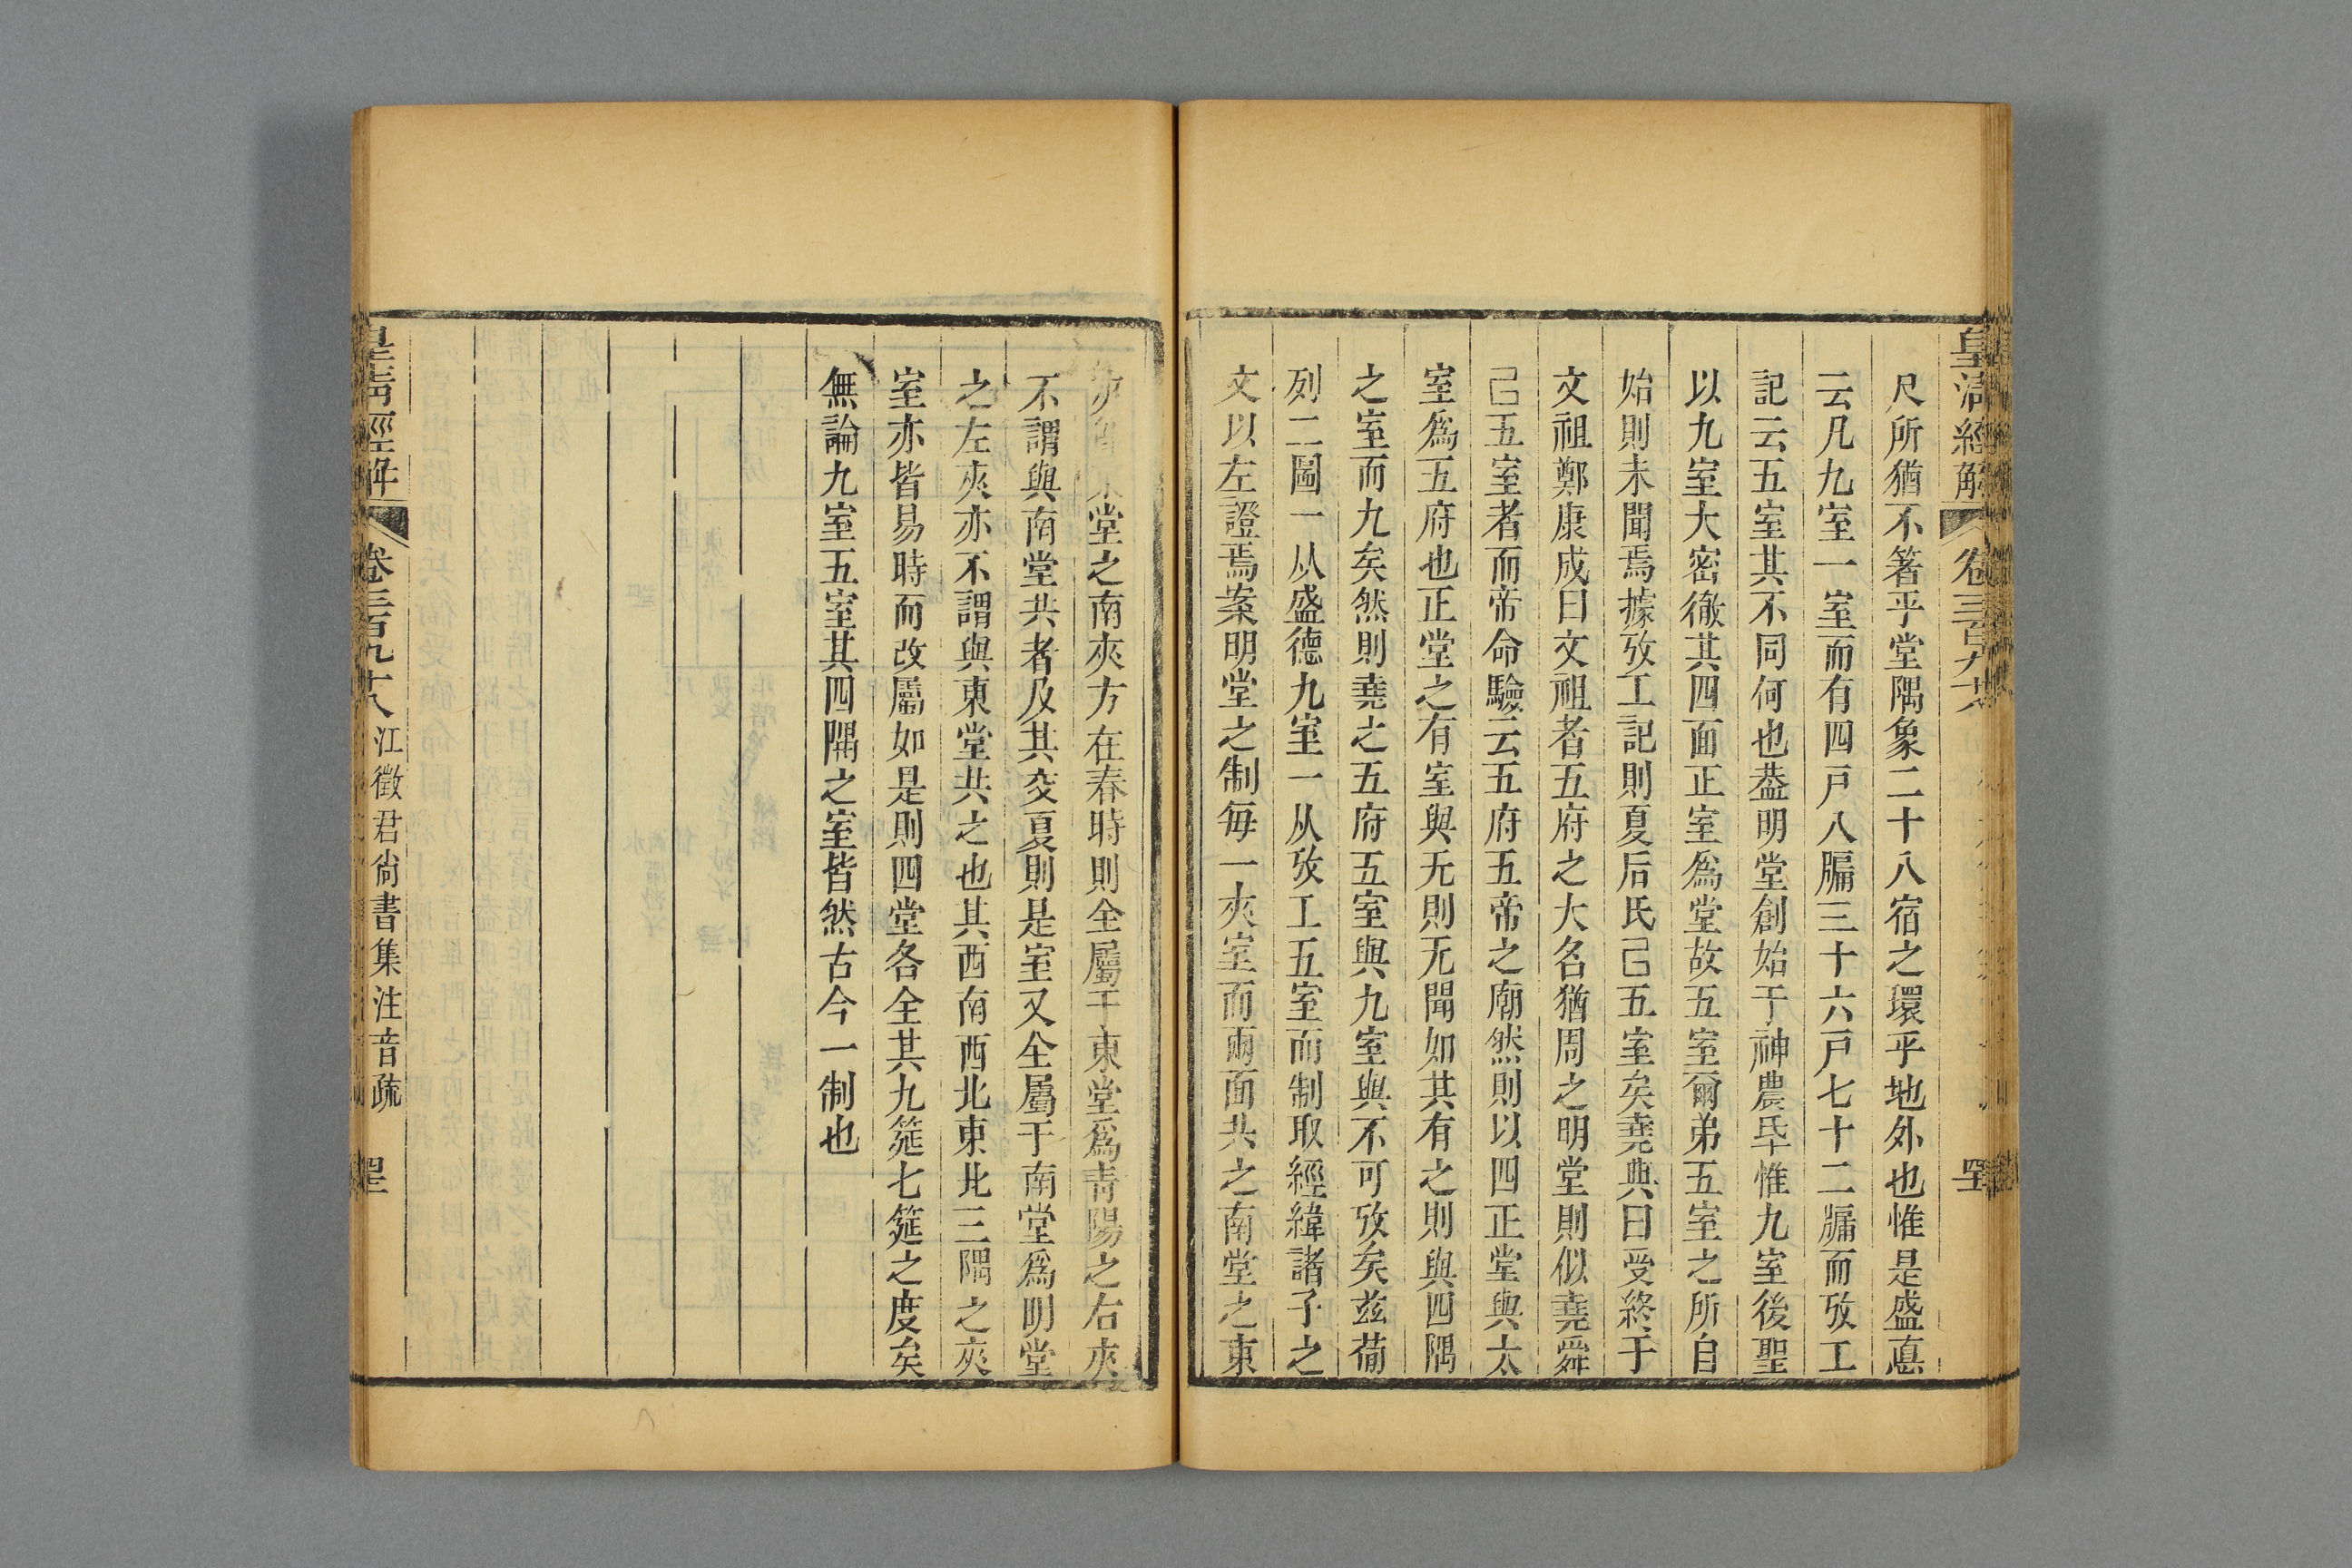 皇清經解
卷三百九十八
尺所猶不箸乎堂隅象二十八宿之環乎地外也惟是盛悳
云凡九室一室而有四戸八牖三十六戸七十二牖而攷工
記云五室其不同何也葢明堂創始于神農氏惟九室後聖
以九室大密徹其四面正室爲堂故五室爾弟五室之所自
始則未聞焉據攷工記則夏后氏已五室矣堯典曰受終于
文祖鄭康成曰文祖者五府之大名猶周之明堂則似堯舜
已五室者而帝命驗云五府五帝之廟然則以四正堂與太
室爲五府也正堂之有室與无則无聞如其有之則與四隅
之室而九矣然則堯之五府五室與九室與不可攷矣兹葡
列二圖一从盛德九室一从攷工五室而制取經緯諸子之
文以左證焉案明堂之制每一夾室而兩面共之南堂之東
堂之南夾方在春時則全屬于東堂爲青陽之右夾
不謂與南堂共者及其交夏則是室又全屬于南堂爲明堂
之左夾亦不謂與東堂共之也其西南西北東北三隅之夾
室亦皆易時而改屬如是則四堂各全其九筵七筵之度矣
無論九室五室其四隅之室皆然古今一制也
皇清經解
卷三百九十八
江徵君尚書集注音疏